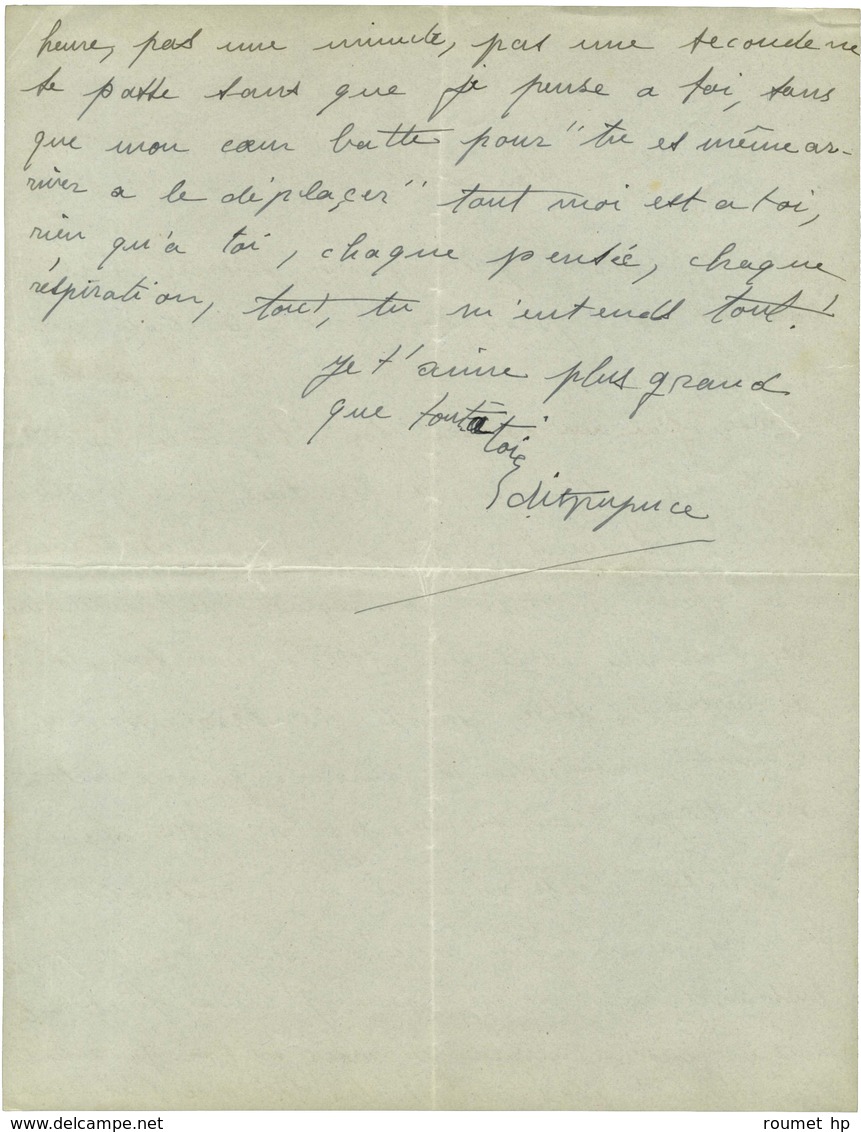 heure, pas une minute, pas une seconde ne
se passe sans que je pense a toi, sans
que mon cœur batte pour " tu es même ar-
river a le déplaçer" tout moi est a toi,
rien qu'a toi, chaque pensée, chaque
réspiration, tout, tu m'entends tout!
je t'aime plus grand
que tout a toi
roumet hp